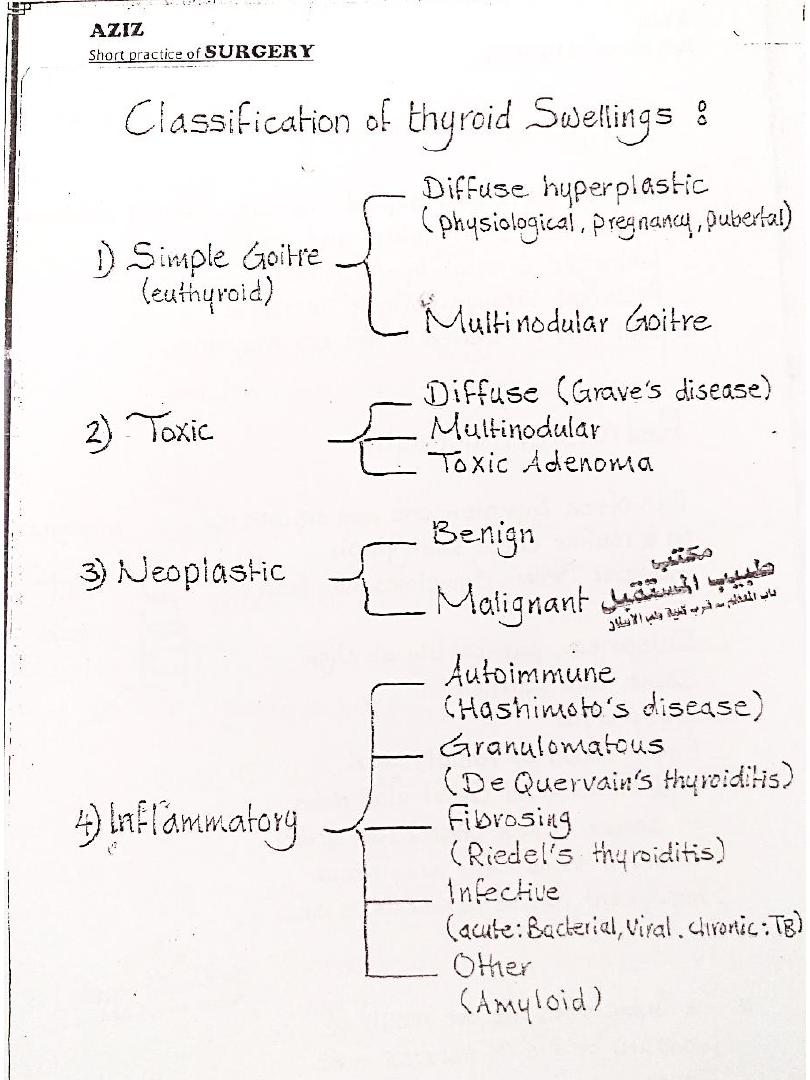 AZIZ
Short practice of SURGERY
Classification of thyroid Swellings :
1) Simple Goitre
(euthyroid)
Diffuse hyperplastic
(physiological, pregnancy, pubertal)
Multinodular Goitre
2) Toxic
Diffuse (Grave's disease)
Multinodular
Toxic Adenoma
3) Neoplastic
Benign
Malignant
مكتب
طبيب المستقبل
باب المعظم - قرب
4) Inflammatory
Autoimmune
(Hashimoto's disease)
Granulomatous
(De Quervain's thyroiditis)
Fibrosing
(Riedel's thyroiditis)
Infective
(acute: Bacterial, Viral. chronic: TB)
Other
(Amyloid)